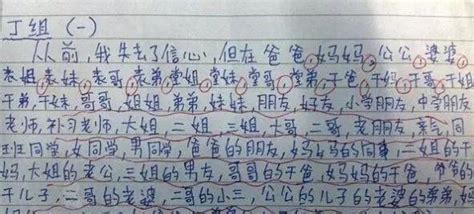 丁组（一）
从前，我失去了信心，但在爸爸，妈妈，公公，婆婆，
表姐，表妹，表哥，表弟，堂姐，堂妹，堂哥，堂弟，干爸，干妈，干哥，干姐
干弟，干妹，哥哥，姐姐，弟弟，妹妹，朋友，好友，小学朋友，中学朋友
老师，补习老师，大姐，二姐，三姐，大哥，二哥，老朋友，亲气，同
班同学，女同学，男同学，爸爸的朋友，妈妈的同事，二姐的干
妈，大姐的老公，三姐的男友，哥哥的干爸，妈妈的干爸，爷爷的
干儿子，二哥的老婆，二哥的小三，公公的儿子的老婆的弟弟，